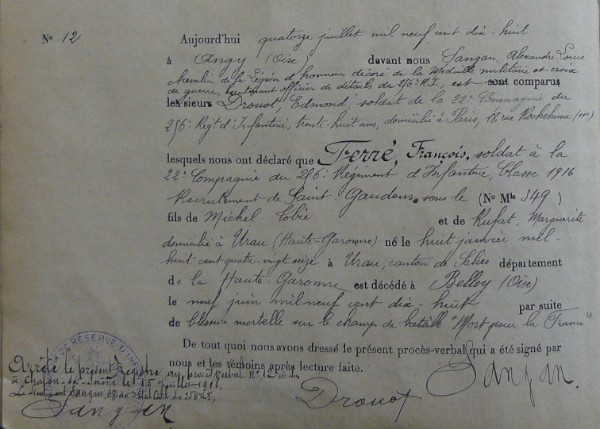 No 12
Aujourd'hui quatorze juillet mil neuf cent dix-huit
à Angy (Oise) devant nous Sangan, Alexandre Louis
chevalier de la Légion d'honneur décoré de la Médaille militaire et croix
de guerre, officier de détails du 276e R.I., est sont comparus
les sieurs Drouot Edmond, soldat de la 22e Compagnie du
276e Régt d'Infanterie, trente huit ans, domicilié à Paris, rue
lesquels nous ont déclaré que Ferré, François, soldat à la
22e Compagnie du 276e Régiment d'Infanterie, Classe 1916
Recrutement de Saint-Gaudens, sous le (No Mle 349)
fils de Michel et de Rufat, Marguerite
domicilié à Urau (Haute-Garonne) né le huit janvier mil-
huit cent quatre-vingt seize à Urau, canton de Salies département
de la Haute-Garonne est décédé à Belloy (Oise)
le neuf juin mil neuf cent dix-huit par suite
de blessure mortelle sur le champ de bataille "Mort pour la France"
De tout quoi nous avons dressé le présent procès-verbal qui a été signé par
nous et les témoins après lecture faite.
Drouot Sangan.
RÉSERVE D'INF
Arrêté le présent Registre au procès verbal No 12
à le 15 juillet 1918.
Le Lieutenant Sangan,
Sangan